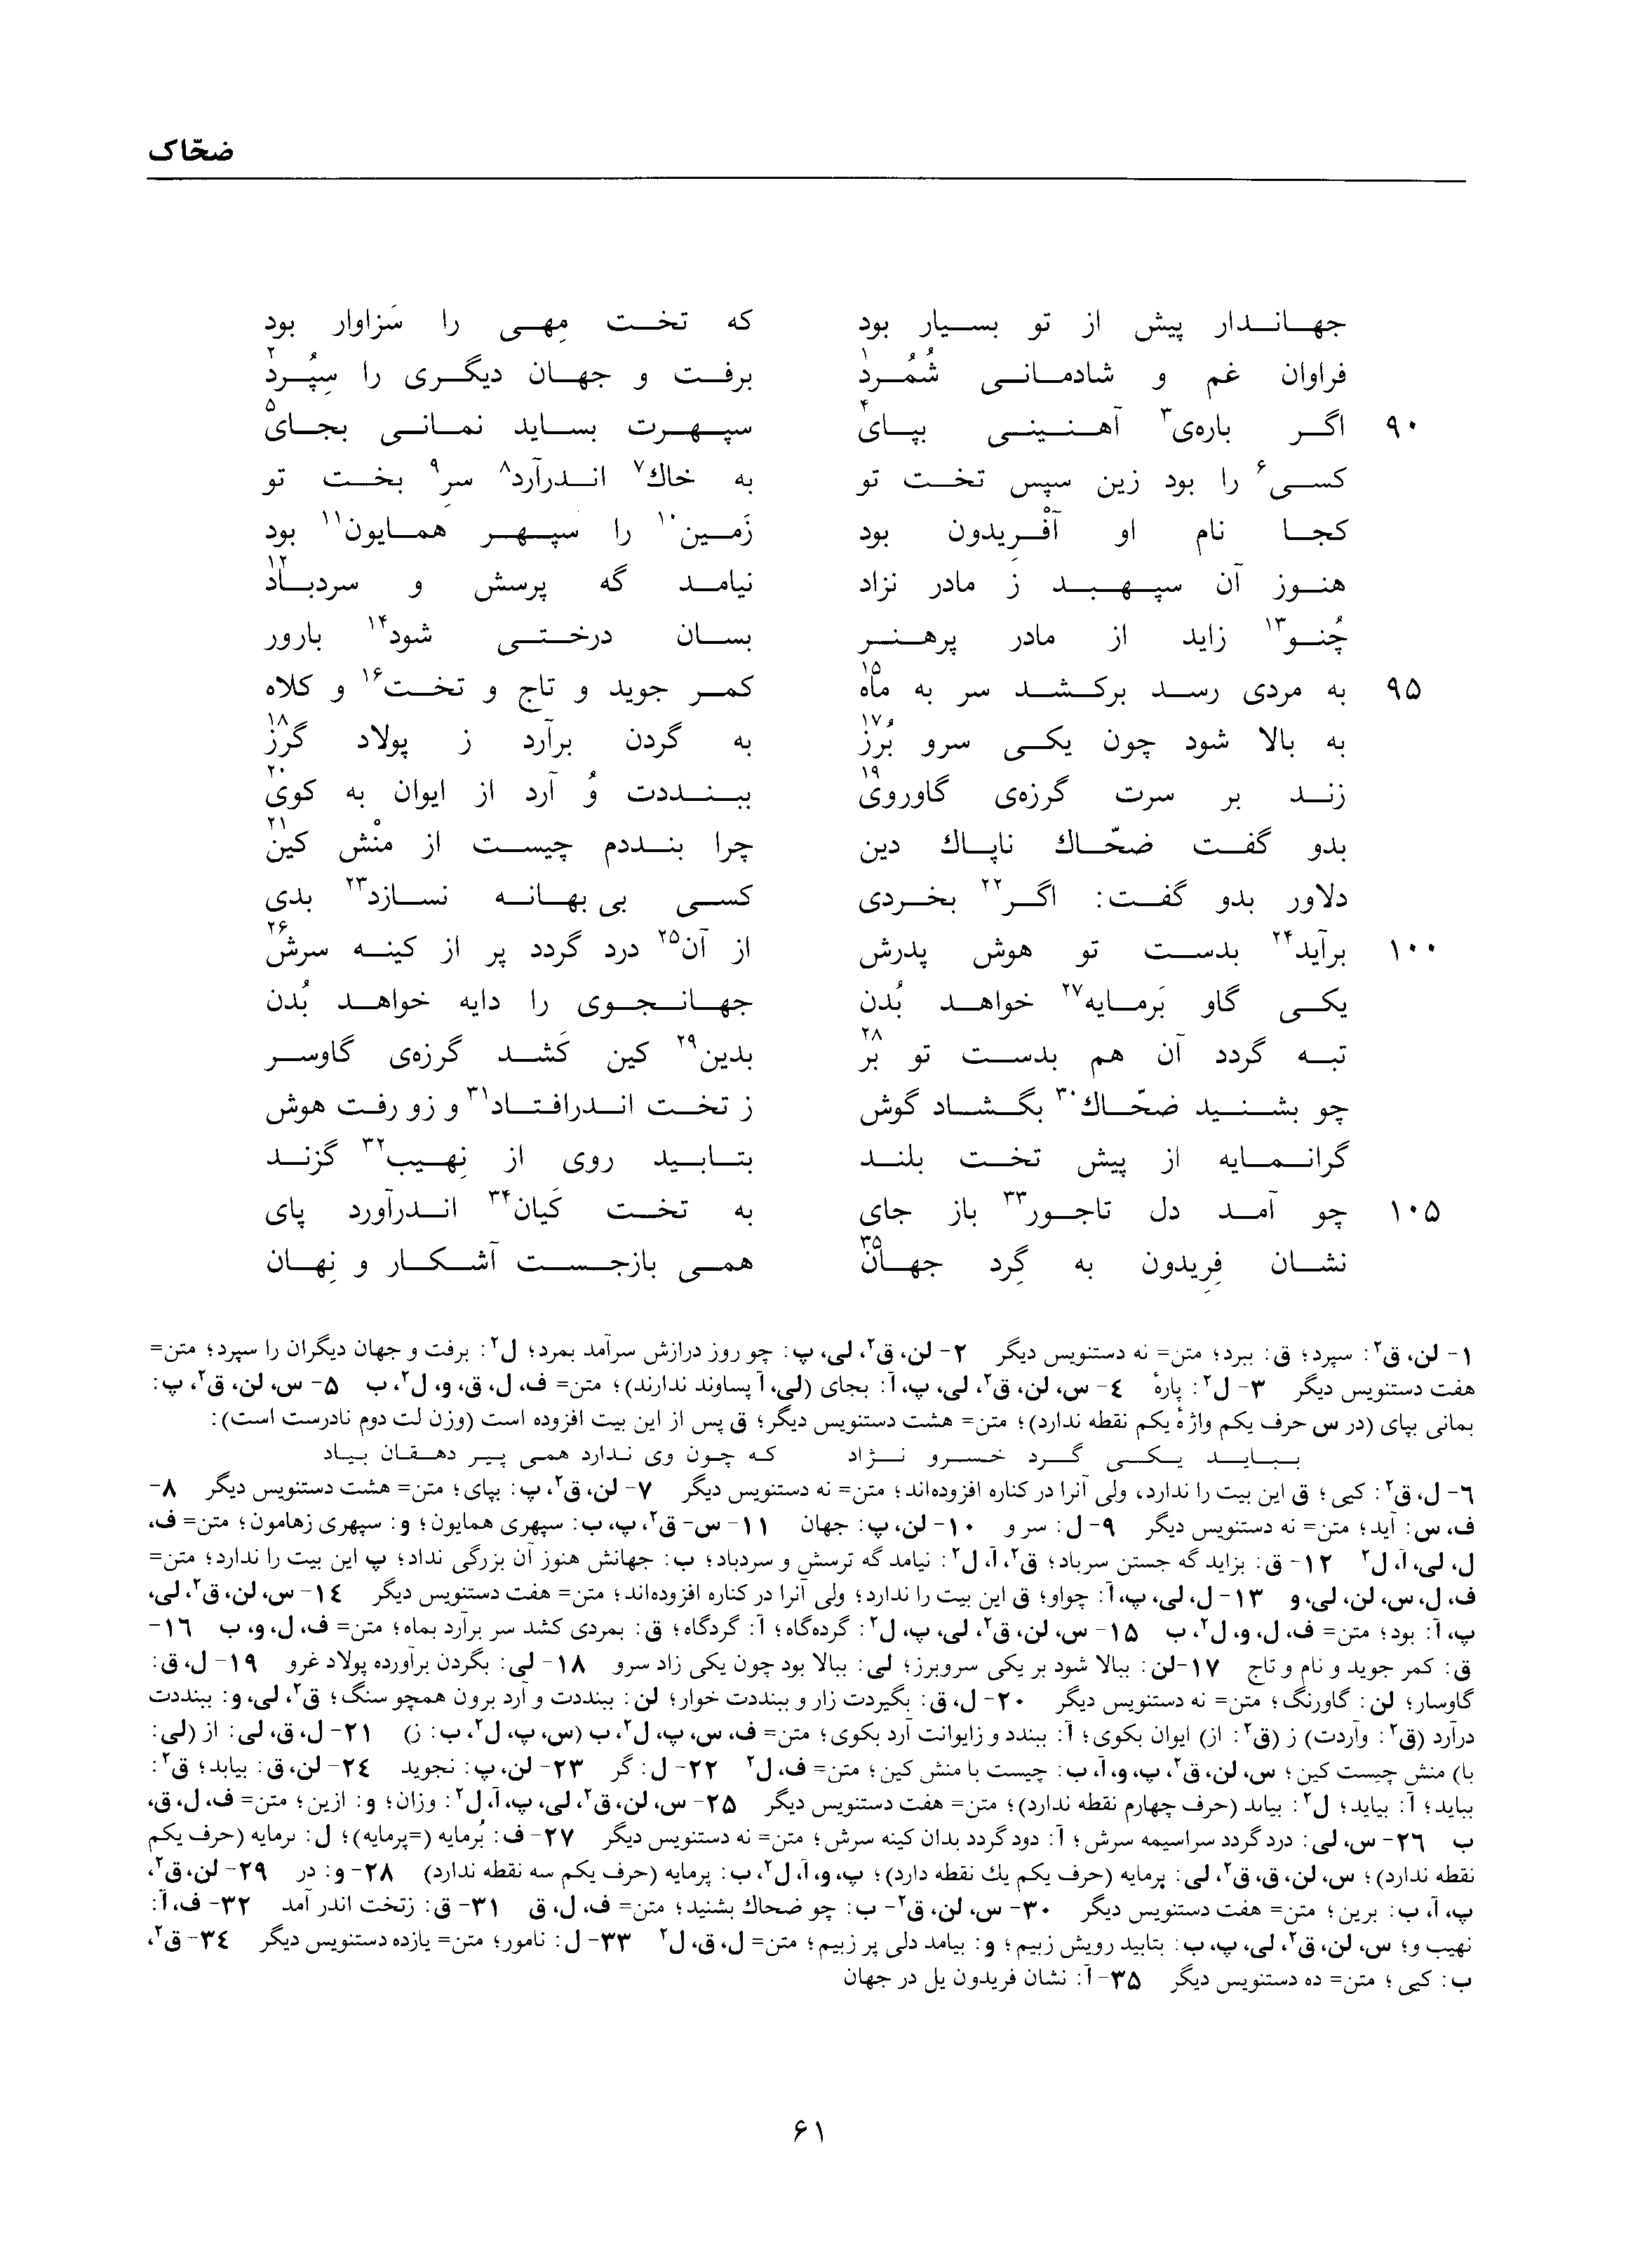 ضحّاک
جهاندار پیش از تو بسیار بود که تخت مِهی را سَزاوار بود
فراوان غم و شادمانی شُمُرد۱ برفت و جهان دیگری را سِپُرد۲
۹۰ اگر باره‌ی۳ آهنینی بپای۴ سپهرت بساید نمانی بجای۵
کسی۶ را بود زین سپس تخت تو به خاك۷ اندرآرد۸ سرِ۹ بخت تو
کجا نام او آفْرِیدون بود زَمین۱۰ را سپهر همایون۱۱ بود
هنوز آن سپهبد ز مادر نزاد نیامد گه پرسش و سردباد۱۲
چُنو۱۳ زاید از مادر پرهنر بسان درختی شود۱۴ بارور
۹۵ به مردی رسد برکشد سر به ماه۱۵ کمر جوید و تاج و تخت۱۶ و کلاه
به بالا شود چون یکی سرو بُرز۱۷ به گردن برآرد ز پولاد گرز۱۸
زند بر سرت گرزه‌ی گاوروی۱۹ ببنددت وُ آرد از ایوان به کوی۲۰
بدو گفت ضحّاك ناپاك دین چرا بنددم چیست از منْش کین۲۱
دلاور بدو گفت: اگر۲۲ بخردی کسی بی بهانه نسازد۲۳ بدی
۱۰۰ برآید۲۴ بدست تو هوش پدرش از آن۲۵ درد گردد پر از کینه سرش۲۶
یکی گاو بَرمایه۲۷ خواهد بُدن جهانجوی را دایه خواهد بُدن
تبه گردد آن هم بدست تو بر۲۸ بدین۲۹ کین کَشد گرزه‌ی گاوسر
چو بشنید ضحّاك۳۰ بگشاد گوش ز تخت اندرافتاد۳۱ و زو رفت هوش
گرانمایه از پیش تخت بلند بتابید روی از نِهیب۳۲ گزند
۱۰۵ چو آمد دل تاجور۳۳ باز جای به تخت کَیان۳۴ اندرآورد پای
نشان فِرِیدون به گِرد جهان۳۵ همی بازجست آشکار و نِهان
۱- لن، ق۲: سپرد؛ ق: ببرد؛ متن= نه دستنویس دیگر ۲- لن، ق۲، لی، پ: چو روز درازش سرآمد بمرد؛ ل۲: برفت و جهان دیگران را سپرد؛ متن=
هفت دستنویس دیگر ۳- ل۲: پارهٔ ٤- س، لن، ق۲، لی، پ، آ: بجای (لی، آ پساوند ندارند)؛ متن= ف، ل، ق، و، ل۲، ب ۵- س، لن، ق۲، پ:
بمانی بپای (در س حرف یکم واژهٔ یکم نقطه ندارد)؛ متن= هشت دستنویس دیگر؛ ق پس از این بیت افزوده است (وزن لت دوم نادرست است):
بیاید یکی گرد خسرو نژاد که چون وی ندارد همی پیر دهقان بیاد
٦- ل، ق۲: کیی؛ ق این بیت را ندارد، ولی آنرا در کناره افزوده‌اند؛ متن= نه دستنویس دیگر ۷- لن، ق۲، پ: بپای؛ متن= هشت دستنویس دیگر ۸-
ف، س: آید؛ متن= نه دستنویس دیگر ۹- ل: سر و ۱۰- لن، پ: جهان ۱۱- س- ق۲، پ، ب: سپهری همایون؛ و: سپهری زهامون؛ متن= ف،
ل، لی، آ، ل۲ ۱۲- ق: بزاید گه جستن سرباد؛ ق۲، آ، ل۲: نیامد گه ترسش و سردباد؛ ب: جهانش هنوز آن بزرگی نداد؛ پ این بیت را ندارد؛ متن=
ف، ل، س، لن، لی، و ۱۳- ل، لی، پ، آ: چواو؛ ق این بیت را ندارد؛ ولی آنرا در کناره افزوده‌اند؛ متن= هفت دستنویس دیگر ۱٤- س، لن، ق۲، لی،
پ، آ: بود؛ متن= ف، ل، و، ل۲، ب ۱۵- س، لن، ق۲، لی، پ، ل۲: گرده‌گاه؛ آ: گردگاه؛ ق: بمردی کشد سر برآرد بماه؛ متن= ف، ل، و، ب ۱٦-
ق: کمر جوید و نام و تاج ۱۷-لن: ببالا شود بر یکی سروبرز؛ لی: ببالا بود چون یکی زاد سرو ۱۸- لی: بگردن برآورده پولاد غرو ۱۹- ل، ق:
گاوسار؛ لن: گاورنگ؛ متن= نه دستنویس دیگر ۲۰- ل، ق: بگیردت زار و ببنددت خوار؛ لن: ببنددت و آرد برون همچو سنگ؛ ق۲، لی، و: ببنددت
درآرد (ق۲: وآردت) ز (ق۲: از) ایوان بکوی؛ آ: ببندد و زایوانت آرد بکوی؛ متن= ف، س، پ، ل۲، ب (س، پ، ل۲، ب: ز) ۲۱- ل، ق، لی: از (لی:
با) منش چیست کین؛ س، لن، ق۲، پ، و، آ، ب: چیست با منش کین؛ متن= ف، ل۲ ۲۲- ل: گر ۲۳- لن، پ: نجوید ۲٤- لن، ق: بیابد؛ ق۲:
بباید؛ آ: بیاید؛ ل۲: بیاٮد (حرف چهارم نقطه ندارد)؛ متن= هفت دستنویس دیگر ۲۵- س، لن، ق۲، لی، پ، آ، ل۲: وزان؛ و: ازین؛ متن= ف، ل، ق،
ب ۲٦- س، لی: درد گردد سراسیمه سرش؛ آ: دود گردد بدان کینه سرش؛ متن= نه دستنویس دیگر ۲۷- ف: بُرمایه (=پرمایه)؛ ل: ٮرمایه (حرف یکم
نقطه ندارد)؛ س، لن، ق، ق۲، لی: برمایه (حرف یکم یك نقطه دارد)؛ پ، و، آ، ل۲، ب: پرمایه (حرف یکم سه نقطه ندارد) ۲۸- و: در ۲۹- لن، ق۲،
پ، آ، ب: برین؛ متن= هفت دستنویس دیگر ۳۰- س، لن، ق۲- ب: چو ضحاك بشنید؛ متن= ف، ل، ق ۳۱- ق: زتخت اندر آمد ۳۲- ف، آ:
نهیب و؛ س، لن، ق۲، لی، پ، ب: بتابید رویش زبیم؛ و: بیامد دلی پر زبیم؛ متن= ل، ق، ل۲ ۳۳- ل: نامور؛ متن= یازده دستنویس دیگر ۳٤- ق۲،
ب: کیی؛ متن= ده دستنویس دیگر ۳۵- آ: نشان فریدون یل در جهان
۶۱